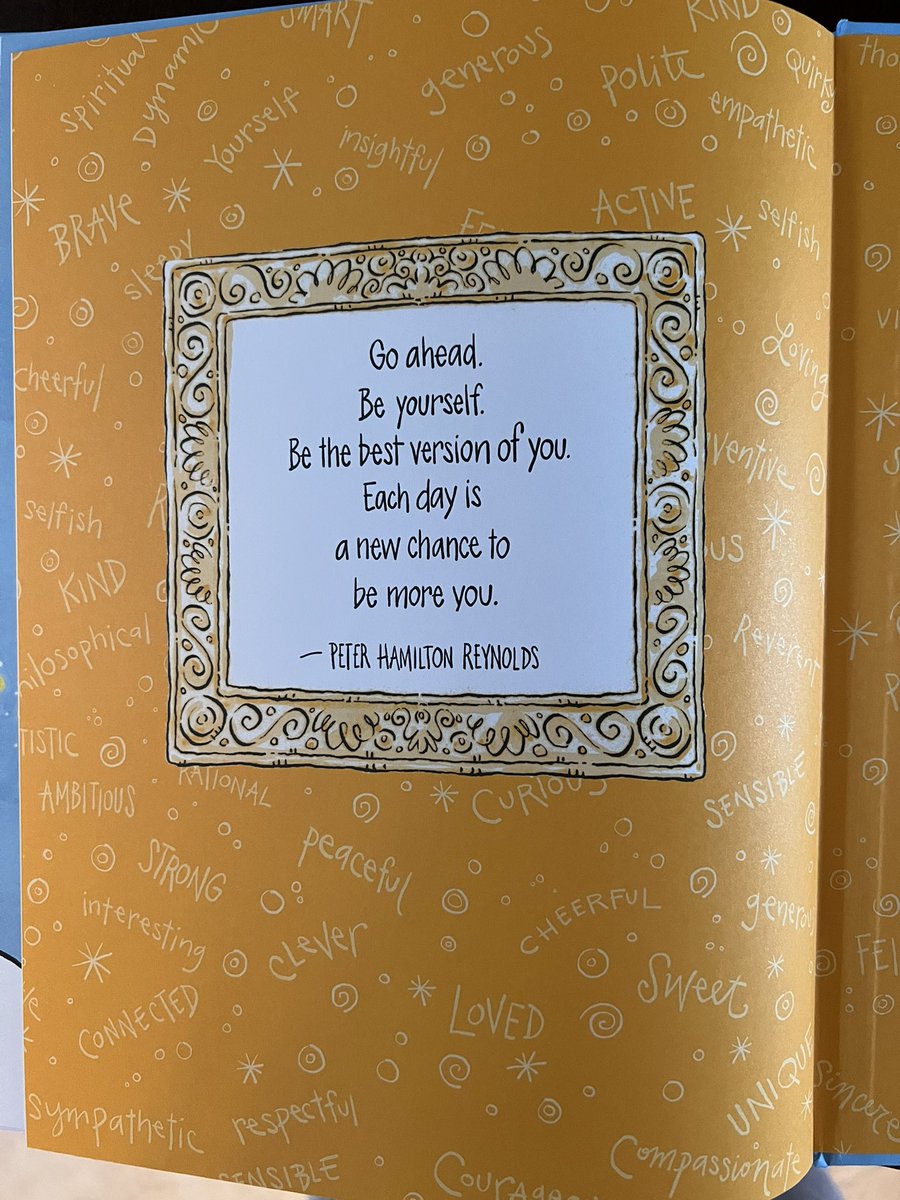 SMART
KIND
spiritual
DYNAMIC
generous
polite
Quirky
Yourself
insightful
empathetic
BRAVE
ACTIVE
selfish
sleepy
Go ahead.
Be yourself.
Be the best version of you.
Each day is
a new chance to
be more you.
— PETER HAMILTON REYNOLDS
cheerful
Loving
selfish
KIND
Reverent
AMBITIOUS
RATIONAL
CURIOUS
SENSIBLE
STRONG
peaceful
interesting
clever
CHEERFUL
generous
Sweet
CONNECTED
LOVED
UNIQUE
Sincere
sympathetic
respectful
Compassionate